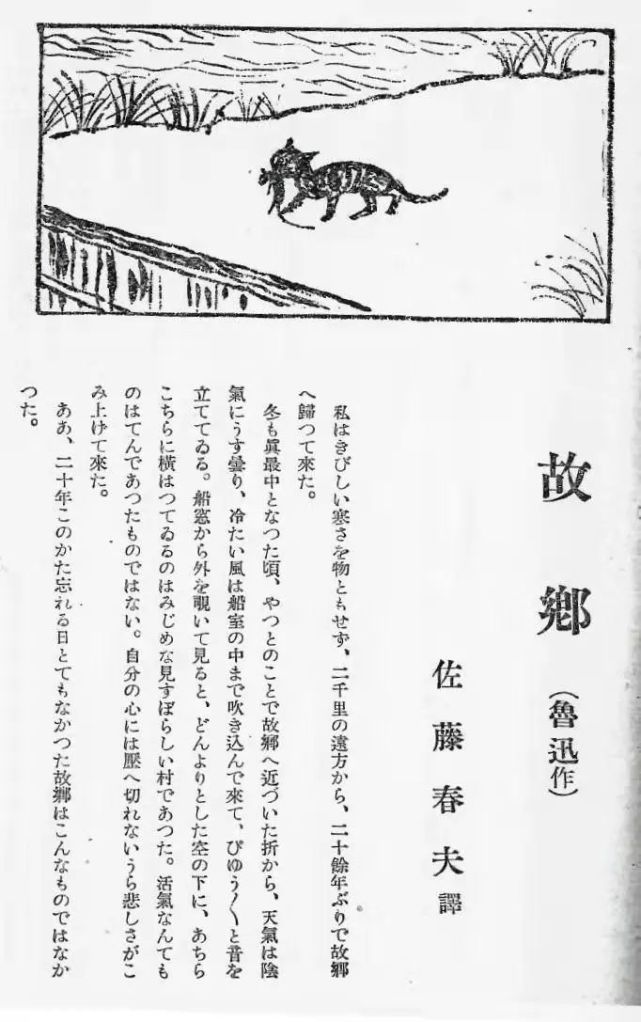 故鄕
（魯迅作）
佐藤春夫譯
私はきびしい寒さを物ともせず、二千里の遠方から、二十餘年ぶりで故鄕
へ歸つて來た。
冬も眞最中となつた頃、やつとのことで故鄕へ近づいた折から、天氣は陰
氣にうす曇り、冷たい風は船室の中まで吹き込んで來て、ぴゆう〱と音を
立ててゐる。船窓から外を覗いて見ると、どんよりとした空の下に、あちら
こちらに橫はつてゐるのはみじめな見すぼらしい村であつた。活氣なんても
のはてんであつたものではない。自分の心には壓へ切れないうら悲しさがこ
み上げて來た。
ああ、二十年このかた忘れる日とてもなかつた故鄕はこんなものではなか
つた。